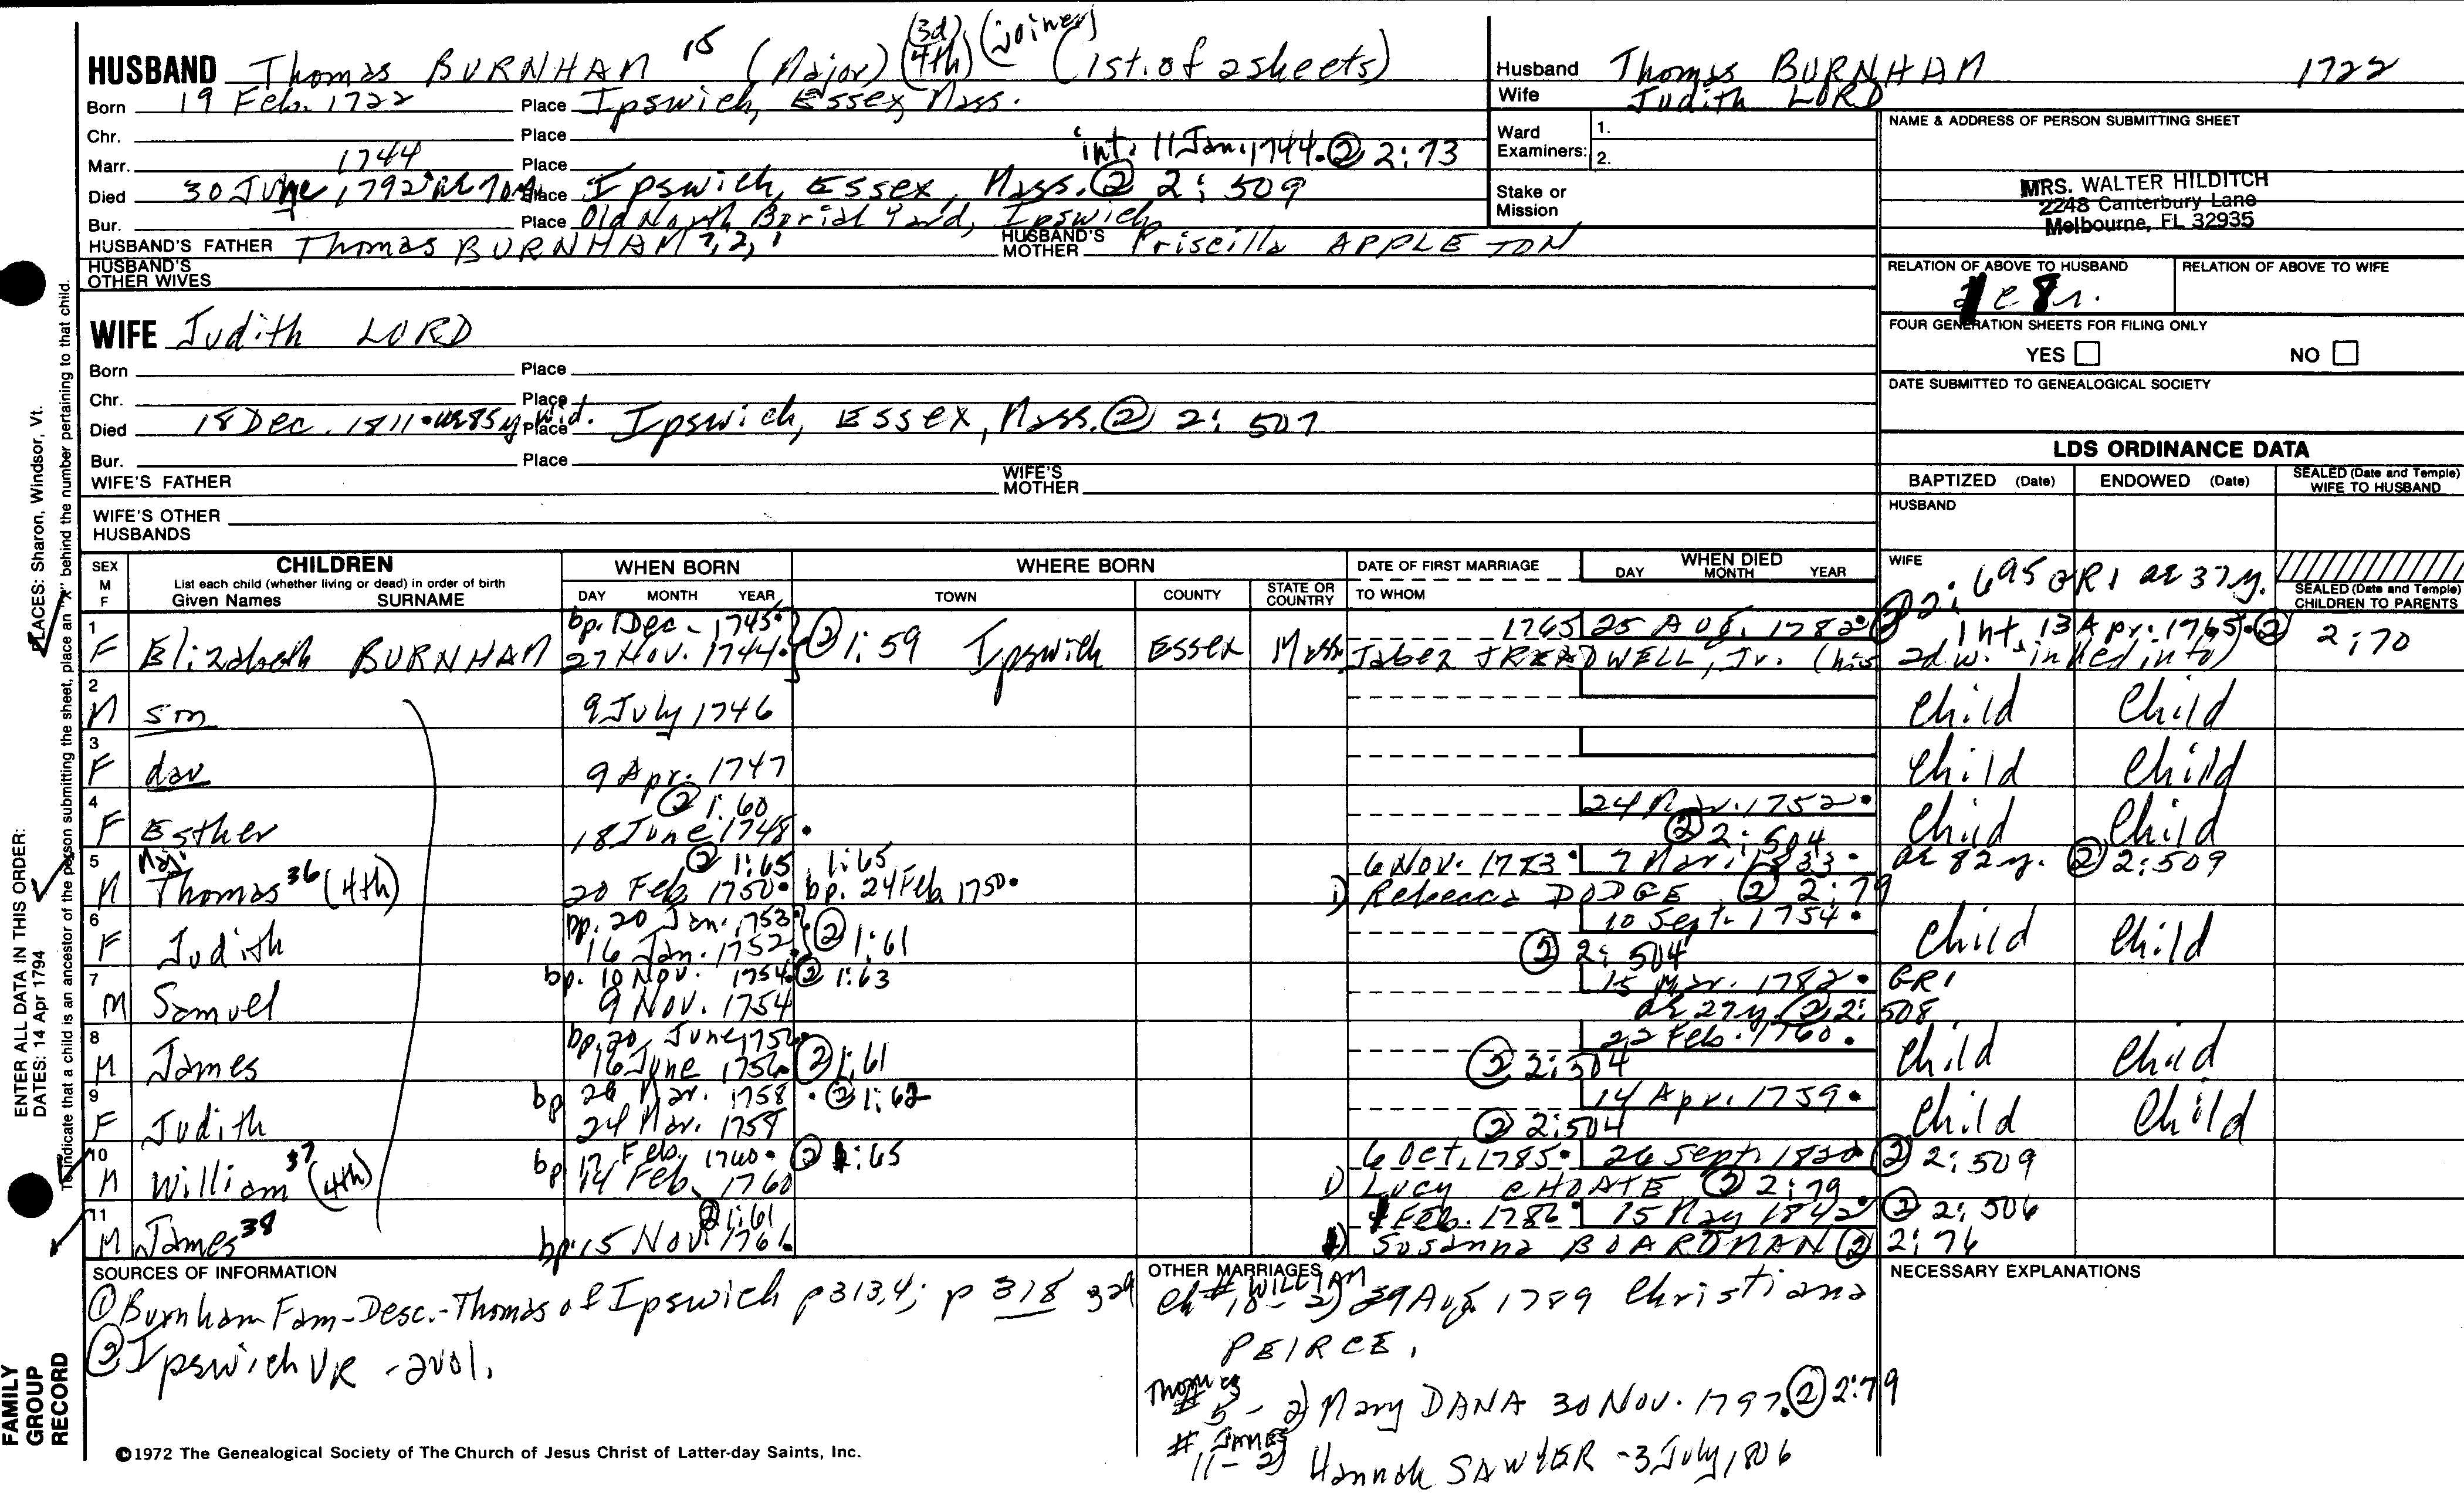 HUSBAND Thomas BURNHAM 15 (Major) (3d) (4th) (joiner) (1st. of 2 sheets)
Born 19 Feb. 1722 Place Ipswich, Essex, Mass.
Chr. Place
Marr. 1744 Place int. 11 Jan. 1744. ② 2:73
Died 30 June, 1792 ae 70 y. Place Ipswich, Essex, Mass. ② 2: 509
Bur. Place Old North Burial Yard, Ipswich
HUSBAND'S FATHER Thomas BURNHAM 7, 2, 1 HUSBAND'S MOTHER Priscilla APPLETON
HUSBAND'S OTHER WIVES
WIFE Judith LORD
Born Place
Chr. Place
Died 18 Dec. 1811. ae 85 y. wid. Place Ipswich, Essex, Mass. ② 2: 507
Bur. Place
WIFE'S FATHER WIFE'S MOTHER
WIFE'S OTHER HUSBANDS
Husband Thomas BURNHAM 1722
Wife Judith LORD
Ward Examiners: 1.
2.
Stake or Mission
NAME & ADDRESS OF PERSON SUBMITTING SHEET
MRS. WALTER HILDITCH
2248 Canterbury Lane
Melbourne, FL 32935
RELATION OF ABOVE TO HUSBAND RELATION OF ABOVE TO WIFE
FOUR GENERATION SHEETS FOR FILING ONLY
YES NO
DATE SUBMITTED TO GENEALOGICAL SOCIETY
LDS ORDINANCE DATA
BAPTIZED (Date) ENDOWED (Date) SEALED (Date and Temple) WIFE TO HUSBAND
HUSBAND
WIFE
SEALED (Date and Temple) CHILDREN TO PARENTS
SEX M F
CHILDREN
List each child (whether living or dead) in order of birth
Given Names SURNAME
WHEN BORN DAY MONTH YEAR
WHERE BORN TOWN COUNTY STATE OR COUNTRY
DATE OF FIRST MARRIAGE TO WHOM
WHEN DIED DAY MONTH YEAR
② 2: 695 GR1 ae 37 y.
1 bp. 1 Dec. 1745. 1765 25 Aug. 1782. int. 13 Apr. 1765. ② 2:70
F Elizabeth BURNHAM 27 Nov. 1744. ② 1:59 Ipswich Essex Mass. Jabez TREADWELL, Jr. (his 2d w. in)
2
M son 9 July 1746 Child Child
3
F dau 9 Apr. 1747 Child Child
4 ② 1:60 24 Mar. 1752.
F Esther 18 June 1748. ② 2:504 Child Child
5 Maj. ② 1:65 1:65 6 Nov. 1783. 7 Mar. 1833. ae 82 y. ② 2:509
M Thomas 36 (4th) 20 Feb. 1750. bp. 24 Feb. 1750. 1) Rebecca DODGE ② 2:79
6 bp. 20 Jan. 1753. 10 Sept. 1754.
F Judith 16 Jan. 1752. ② 1:61 ② 2: 504 Child Child
7 bp. 10 Nov. 1754. ② 1:63 15 Mar. 1782. GR1
M Samuel 9 Nov. 1754 ae 27 y. ② 2: 508
8 bp. 20 June, 1756. 22 Feb. 1760.
M James 16 June 1756. ② 1:61 ② 2:504 Child Child
9 bp 26 Mar. 1758. ② 1:62 14 Apr. 1759.
F Judith 24 Mar. 1758 ② 2:504 Child Child
10 bp 17 Feb. 1760. ② 1:65 6 Oct. 1785. 26 Sept. 1820 ② 2: 509
M William 37 (4th) 14 Feb. 1760 1) Lucy CHOATE ② 2:79
11 ② 1:61 Feb. 1786. 15 May 1842 ② 2: 506
M James 38 bp. 15 Nov. 1761. 1) Susanna BOARDMAN ② 2:76
SOURCES OF INFORMATION
① Burnham Fam-Desc.-Thomas of Ipswich p 313,4; p 318 329
② Ipswich VR - 2 vol.
OTHER MARRIAGES
Ch # WILLIAM 10 - 2) 29 Aug 1789 Christiana
PEIRCE.
Thomas # 5 - 2) Mary DANA 30 Nov. 1797. ② 2:79
# JAMES 11 - 2) Hannah SAWYER - 3 July, 1806
NECESSARY EXPLANATIONS
©1972 The Genealogical Society of The Church of Jesus Christ of Latter-day Saints, Inc.
FAMILY GROUP RECORD
ENTER ALL DATA IN THIS ORDER:
DATES: 14 Apr 1794 PLACES: Sharon, Windsor, Vt.
To indicate that a child is an ancestor of the person submitting the sheet, place an "x" behind the number pertaining to that child.